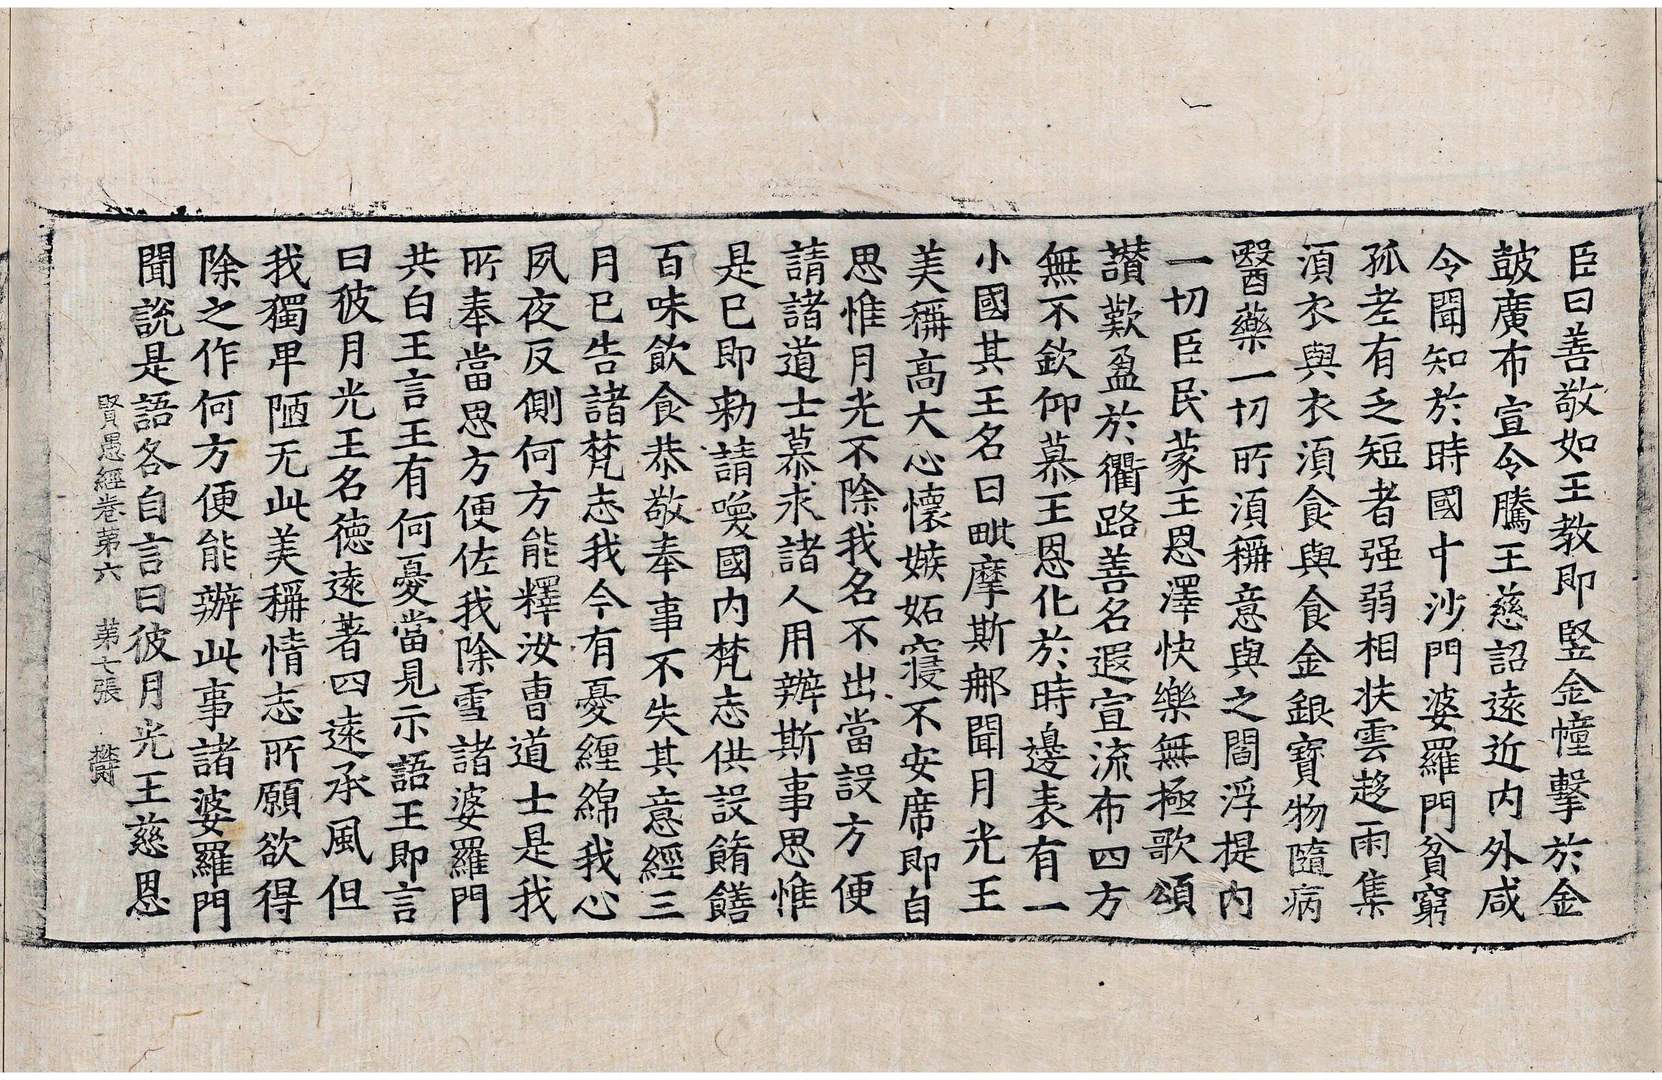 臣曰善敬如王教即竪金幢擊於金
皷廣布宣令騰王慈詔遠近内外咸
令聞知於時國中沙門婆羅門貧窮
孤老有乏短者强弱相扶雲趍雨集
湏衣與衣湏食與食金銀寶物隨病
醫藥一切所湏稱意與之閻浮提内
一切臣民蒙王恩澤快樂無極歌頌
讃歎盈於衢路善名遐宣流布四方
無不欽仰慕王恩化於時邊表有一
小國其王名曰毗摩斯那聞月光王
美稱高大心懷嫉妬寝不安席即自
思惟月光不除我名不出當設方便
請諸道士慕求諸人用辦斯事思惟
是已即勑請喚國内梵志供設餚饍
百味飲食恭敬奉事不失其意經三
月已告諸梵志我今有憂纒綿我心
夙夜反側何方能釋汝曺道士是我
所奉當思方便佐我除雪諸婆羅門
共白王言王有何憂當見示語王即言
曰彼月光王名德遠著四遠承風但
我獨卑陋无此美稱情志所願欲得
除之作何方便能辦此事諸婆羅門
聞說是語各自言曰彼月光王慈恩
賢愚經卷第六 第七張